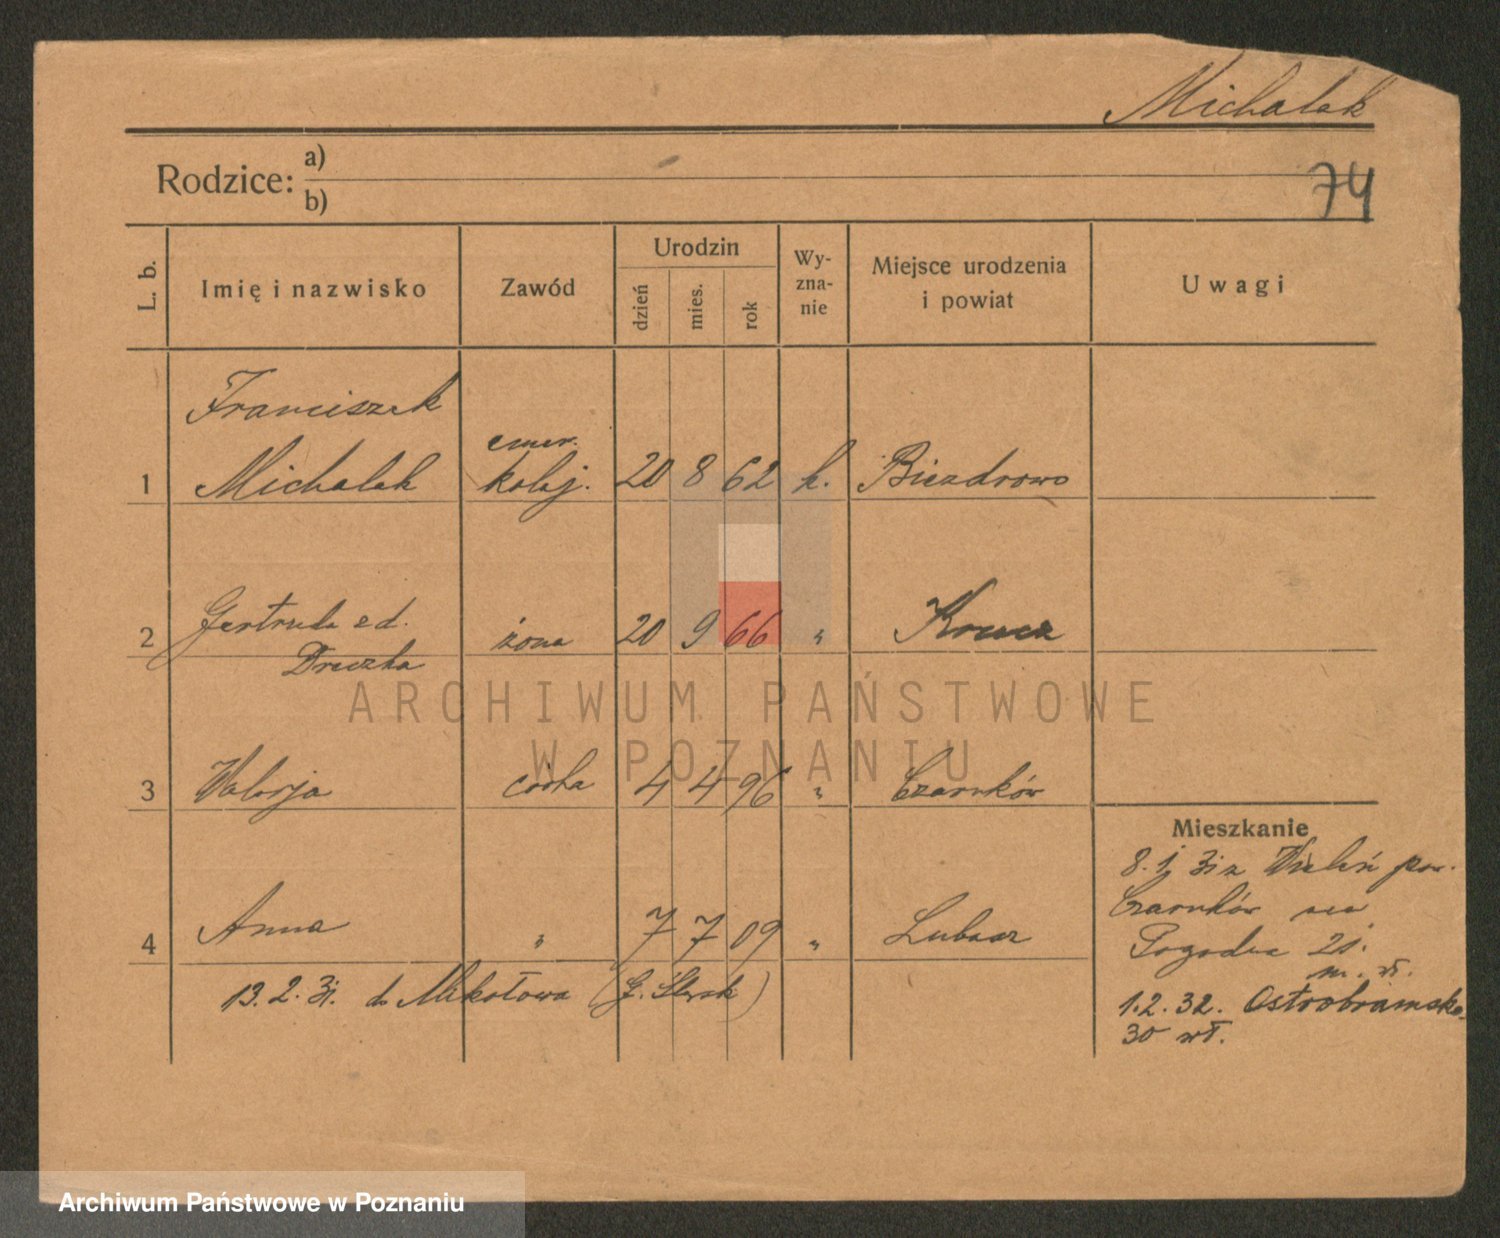 Michalak
Rodzice: a)
b)
74
L. b.
Imię i nazwisko
Zawód
Urodzin
dzień
mies.
rok
Wy-
zna-
nie
Miejsce urodzenia
i powiat
Uwagi
Franciszek
1 Michalak emer. kolej. 20 8 62 k. Biezdrowo
2 Gertruda żona 20 9 66 " Krucz
3 Walerja córka 4 4 96 " Czarnków
4 Anna " 7 7 09 " Lubasz
13.2.31. do Mikołowa (G. Śląsk)
Mieszkanie
8.1.31 z Wieleń pow.
Czarnków
Pogodna 21.
1.2.32. Ostrobramska
30 wł.
ARCHIWUM PAŃSTWOWE
W POZNANIU
Archiwum Państwowe w Poznaniu